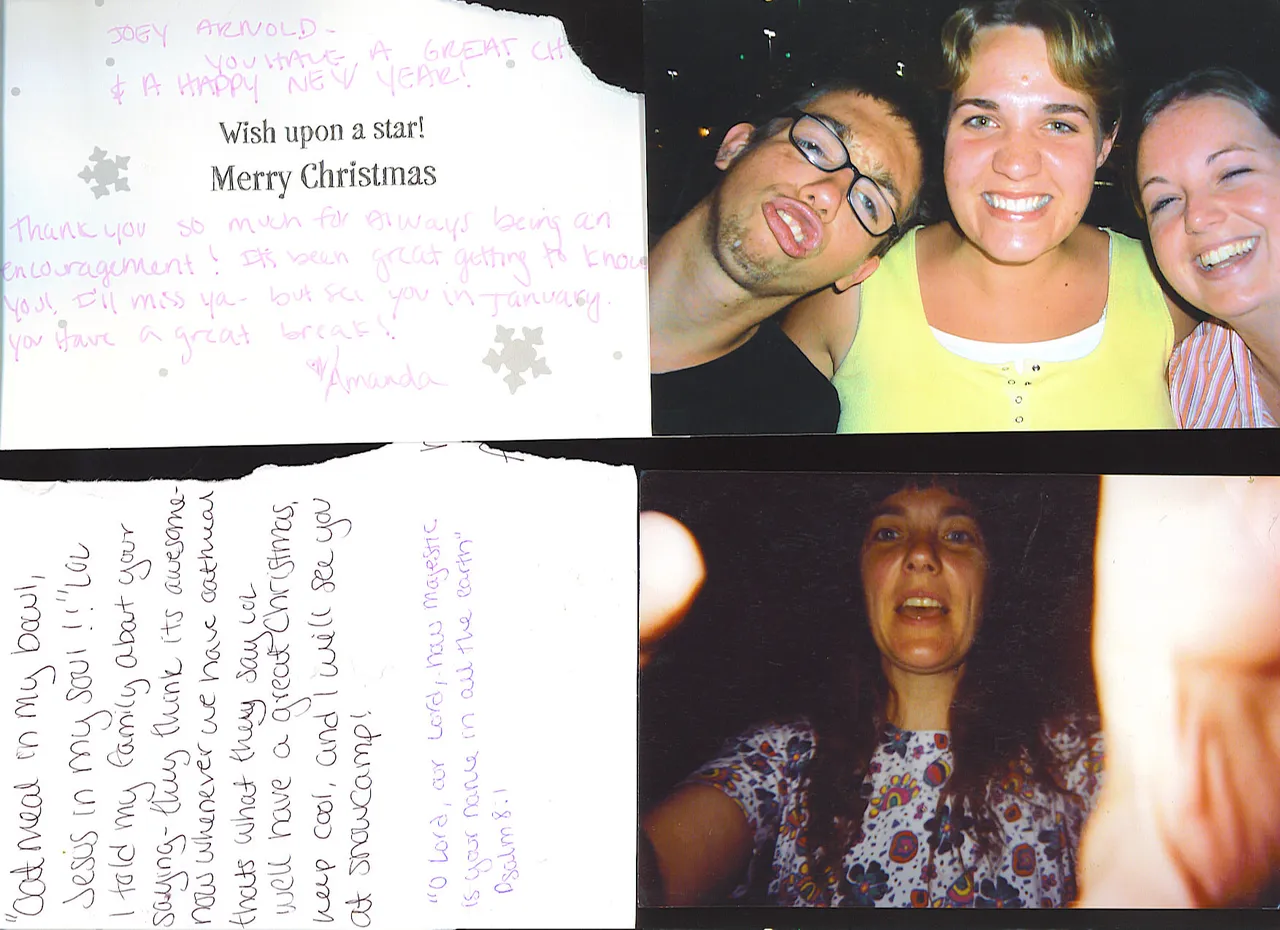 JOEY ARNOLD-
YOU HAVE A GREAT CH
& A HAPPY NEW YEAR!
Wish upon a star!
Merry Christmas
Thank you so much for Always being an
encouragement! It's been great getting to know
you! I'll miss ya- but see you in January.
you Have a great break!
♥Amanda
"Oat meal in my bowl,
Jesus in my soul!!" LOL
I told my family about your
saying- they think its awesome-
now whenever we have oatmeal
thats what they say lol-
well have a great Christmas,
keep cool, and I will see you
at snowcamp!
"O Lord, our Lord, how majestic
is your name in all the earth"
Psalm 8:1